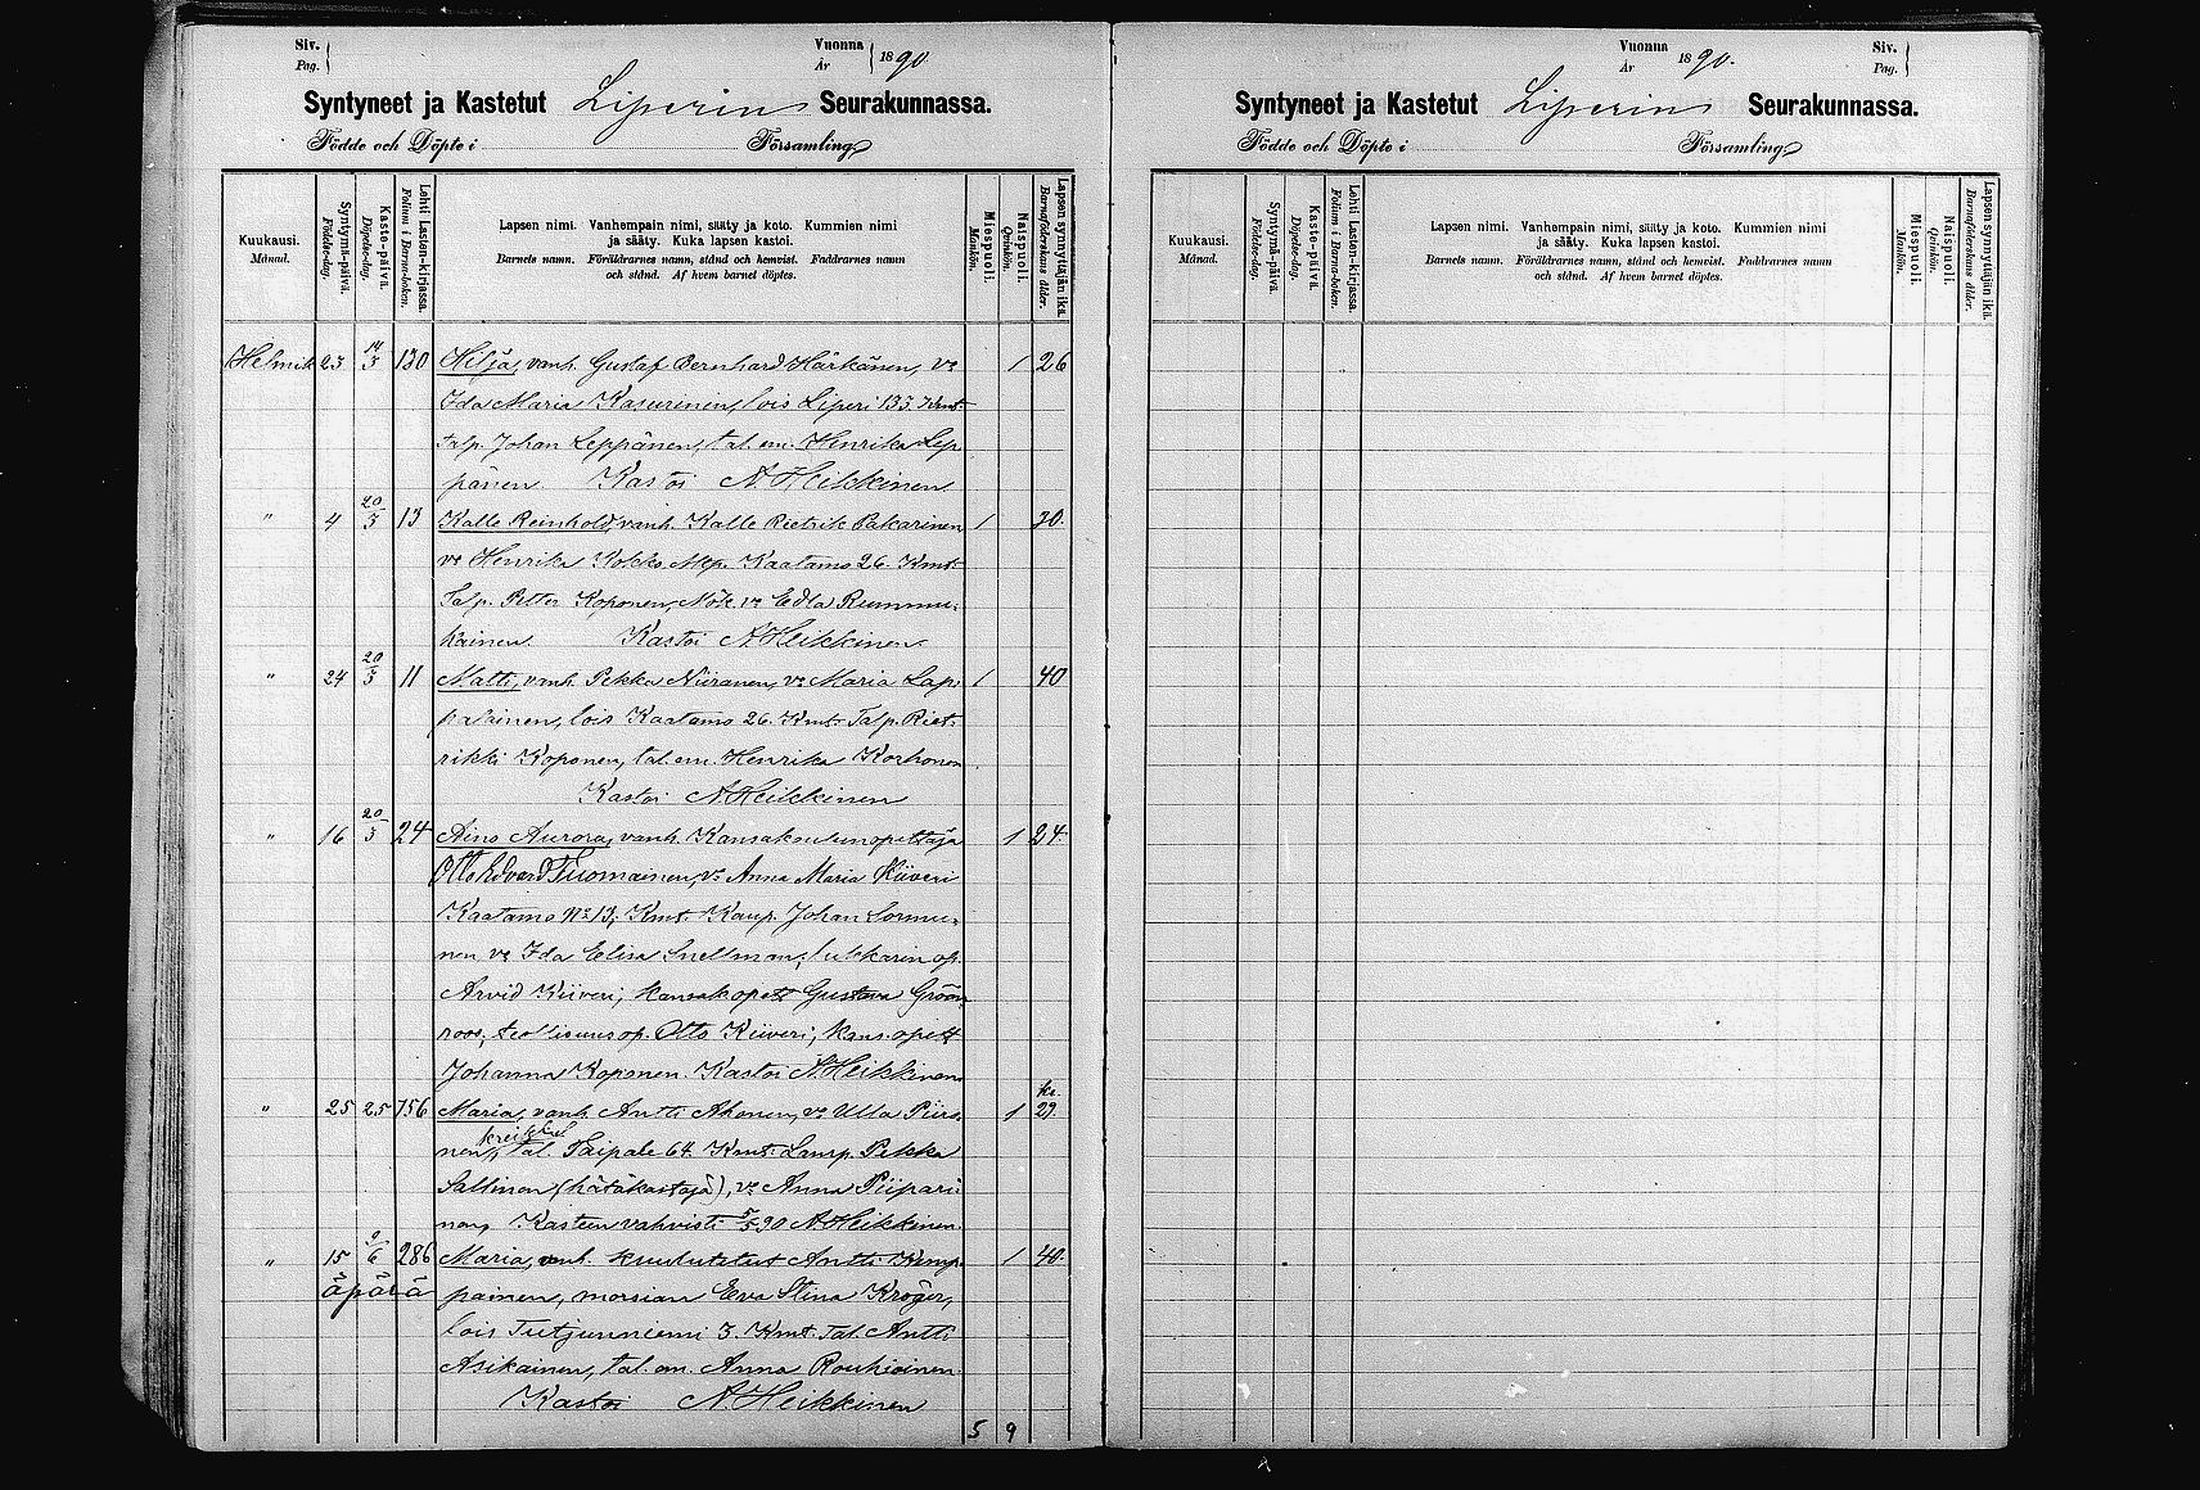 Siv. Vuonna
Pag. År 1890.
Syntyneet ja Kastetut Liperin Seurakunnassa.
Födde och Döpte i Församling
Kuukausi. Månad.
Syntymä-päivä. Födelse-dag.
Kaste-päivä. Döpelse-dag.
Lehti Lasten-kirjassa. Folium i Barna-boken.
Lapsen nimi. Vanhempain nimi, sääty ja koto. Kummien nimi
ja sääty. Kuka lapsen kastoi.
Barnets namn. Föräldrarnes namn, stånd och hemvist. Faddrarnes namn
och stånd. Af hvem barnet döptes.
Miespuoli. Mankön.
Naispuoli. Qvinkön.
Lapsen synnyttäjän ikä. Barnaföderskans ålder.
Helmik 23 14/3 130 Hilja, vanh. Gustaf Bernhard Härkänen, vo 1 26
Ida Maria Kasurinen, lois Liperi 133. Kmt.
talp. Johan Leppänen, tal. em. Henrika Lep-
pänen. Kastoi A. Heikkinen.
" 4 20/3 13 Kalle Reinhold, vanh. Kalle Rietrik Pakarinen 1 30.
vo Henrika Kokko Mtp. Kaatamo 26. Kmt:
Talp. Petter Koponen, Mök. vo Edla Rummu-
kainen. Kastoi A. Heikkinen.
" 24 20/3 11 Matti, vanh. Pekka Niiranen, vo Maria Lap- 1 40
palainen, lois Kaatamo 26. Kmt. Talp. Riet-
rikki Koponen, tal. em. Henrika Korhonen
Kastoi A. Heikkinen
" 16 20/3 24 Aino Aurora, vanh. Kansakoulunopettaja 1 24.
Otto Edvard Tuomainen, vo Anna Maria Kiiveri
Kaatamo No 13; Kmt. Kaup. Johan Sormu-
nen, vo Ida Elisa Snellman; lukkarin op.
Arvid Kiiveri, kansak opett Gustava Grön-
roos; teollisuus op. Otto Kiiveri; kans. opett
Johanna Koponen. Kastoi A. Heikkinen
" 25 25 756 Maria, vanh. Antti Ahonen, vo Ulla Piiro- 1 kr. 29.
nen, kreikkal tal. Taipale 64. Kmt: Lamp. Pekka
Sallinen (hätäkastaja), vo Anna Piipari-
nen, Kasteen vahvisti 5/5 90 A. Heikkinen.
" 15 9/6 286 Maria, vanh. kuulutetut Antti Kimp- 1 40.
äpärä painen, morsian Eva Stina Kröger,
lois Tutjunniemi 3. Kmt. Tal. Antti
Asikainen, tal. em. Anna Rouhiainen.
Kastoi A. Heikkinen
5 9
Vuonna Siv.
År 1890. Pag.
Syntyneet ja Kastetut Liperin Seurakunnassa.
Födde och Döpte i Församling
Kuukausi. Månad.
Syntymä-päivä. Födelse-dag.
Kaste-päivä. Döpelse-dag.
Lehti Lasten-kirjassa. Folium i Barna-boken.
Lapsen nimi. Vanhempain nimi, sääty ja koto. Kummien nimi
ja sääty. Kuka lapsen kastoi.
Barnets namn. Föräldrarnes namn, stånd och hemvist. Faddrarnes namn
och stånd. Af hvem barnet döptes.
Miespuoli. Mankön.
Naispuoli. Qvinkön.
Lapsen synnyttäjän ikä. Barnaföderskans ålder.